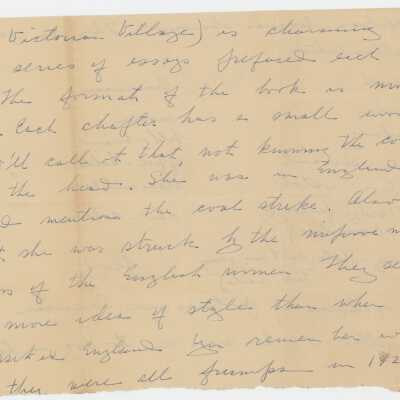 Victorian Village) is charming
series of essays prefaced each
The format of the book is
. Each chapter has a small
'll call it that, not knowing the co
the head. She was in England
mentions the coal strike. Also
she was struck by the improvem
of the English women They se
more idea of style than when
England remember
they were all frumps in 192